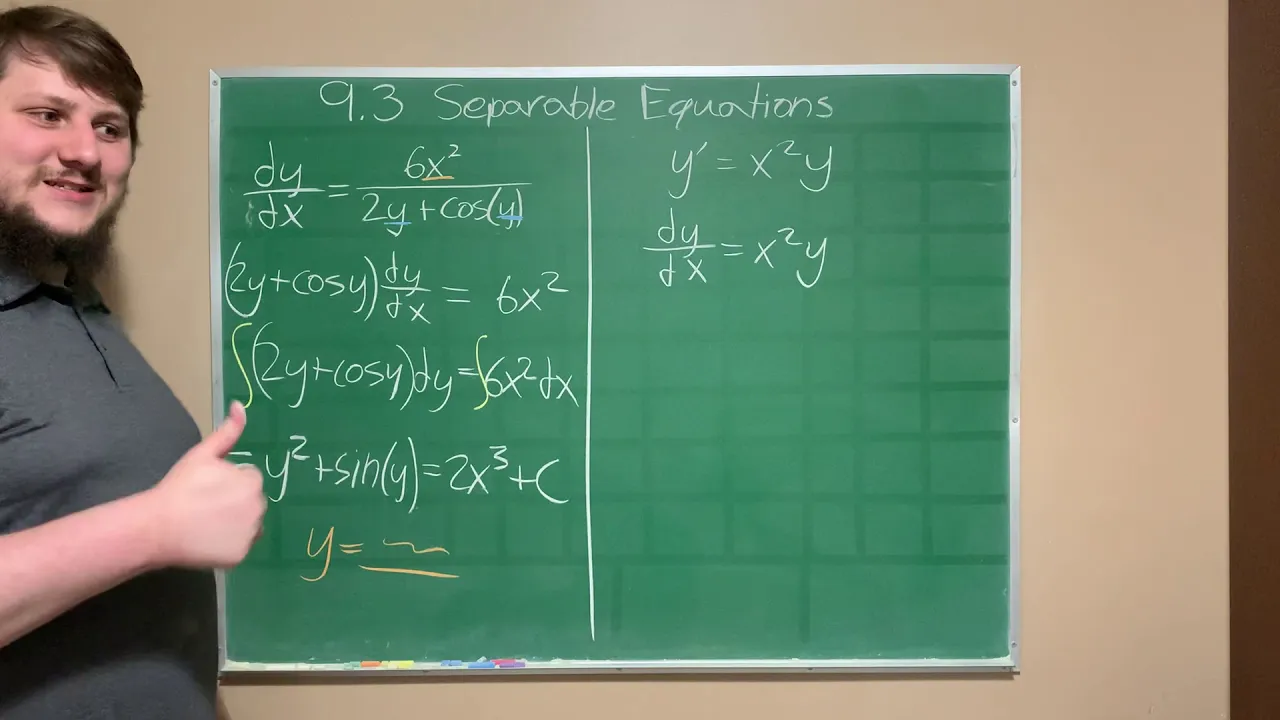 9.3 Separable Equations
dy/dx = 6x²/(2y + cos(y))
(2y+cosy) dy/dx = 6x²
∫(2y+cosy)dy = ∫6x²dx
= y² + sin(y) = 2x³ + C
y =
y′ = x²y
dy/dx = x²y